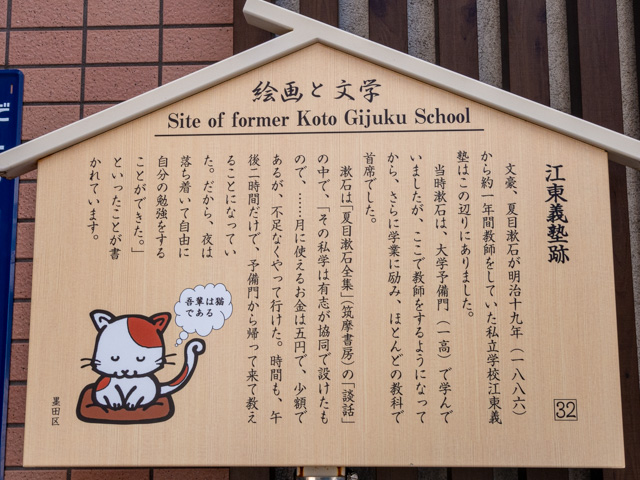 絵画と文学
Site of former Koto Gijuku School
江東義塾跡
文豪、夏目漱石が明治十九年（一八八六）
から約一年間教師をしていた私立学校江東義
塾はこの辺りにありました。
当時漱石は、大学予備門（一高）で学んで
いましたが、ここで教師をするようになって
から、さらに学業に励み、ほとんどの教科で
首席でした。
漱石は「夏目漱石全集」（筑摩書房）の「談話」
の中で、「その私学は有志が協同で設けたも
ので、……月に使えるお金は五円で、少額で
あるが、不足なくやって行けた。時間も、午
後二時間だけで、予備門から帰って来て教え
ることになってい
た。だから、夜は
落ち着いて自由に
自分の勉強をする
ことができた。」
といったことが書
かれています。
吾輩は猫
である
墨田区
32